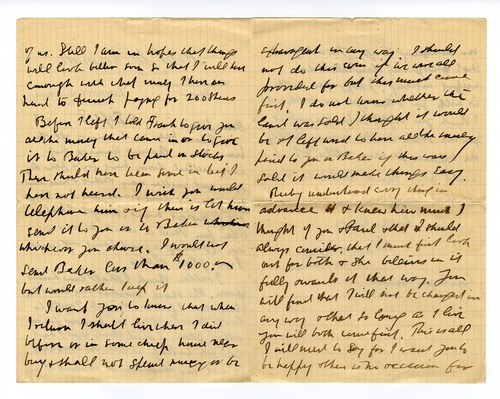 of us. Still I am in hopes that things
will look better soon so that I will have
enough with what money I have on
hand to finish paying for 200 shares
Before I left I told Frank to give you
all the money that came in or to give
it to Baker to be paid on stocks
There should have been some in but I
have not heard. I wish you would
telephone him & if there is let him
send it to you or to Baker
whichever you choose. I would not
send Baker less than $1000.00
but would rather keep it
I want you to know that when
I return I shall live there I did
before or in some cheap home near
by & shall not spend money or be
extravagant in any way. I should
not do this even if we were all
provided for but this must come
first. I do not know whether the
land was sold I thought it would
be & left word to have all the money
paid to you or Baker if this was
sold it would make things easy.
Ruby understood everything in
advance & knew how much I
thought of you & Paul & that I should
always consider, that I must first look
out for both & she believes in it
fully & wants it that way. You
will find that I will not be changed in
any way & that so long as I live
you will both come first. This is all
I will need to say for I want you to
be happy & there is no occasion for